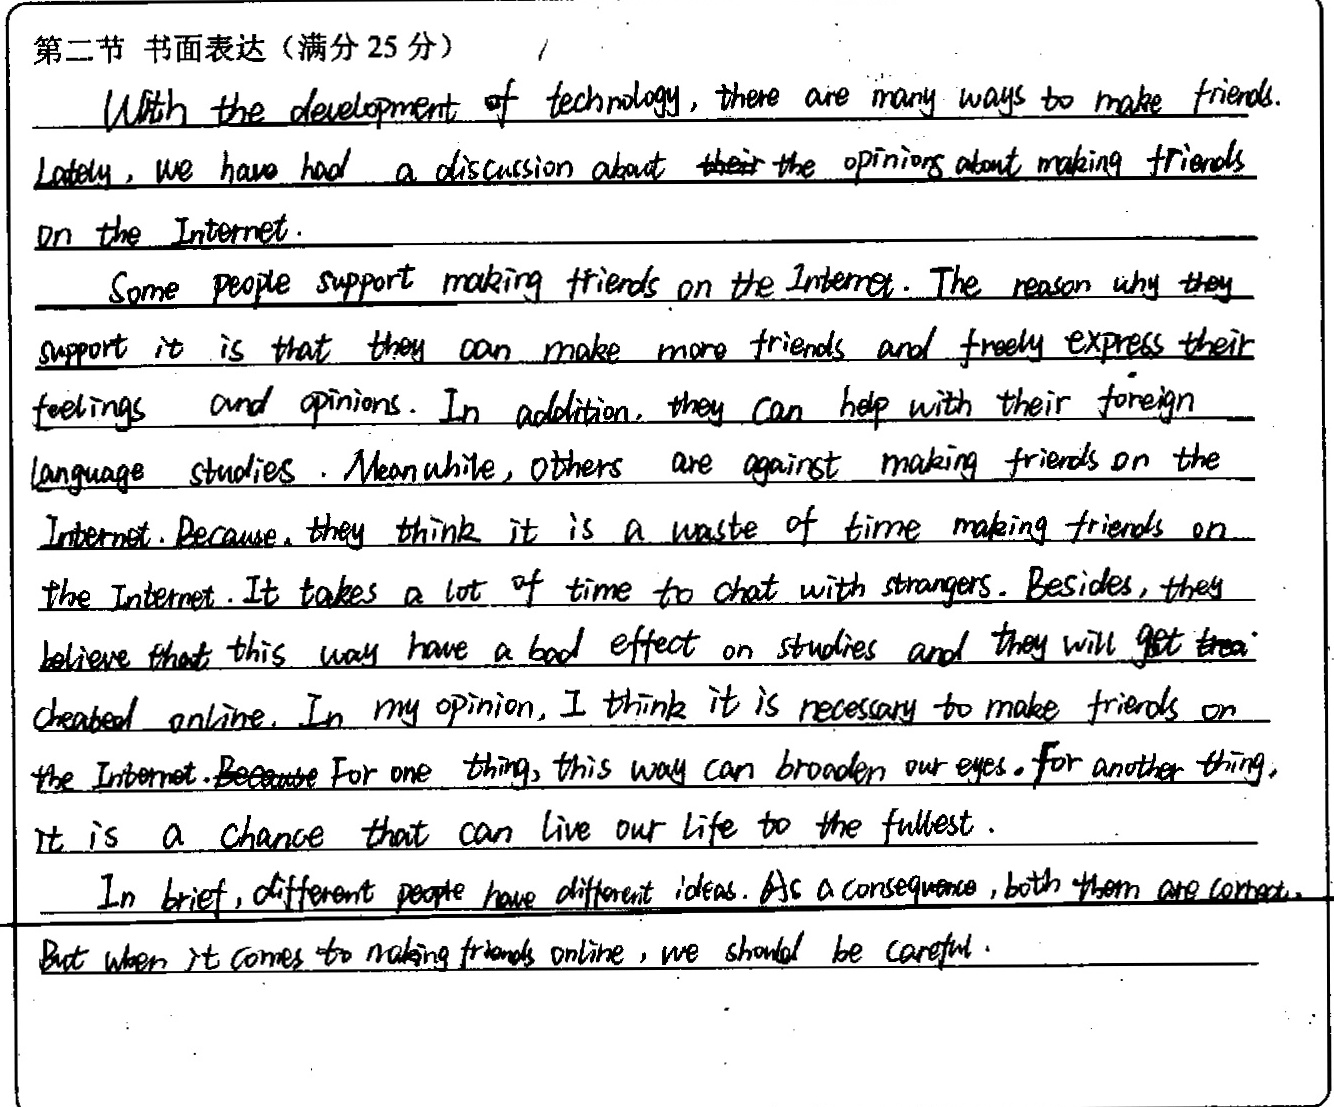 第二节 书面表达（满分 25 分）
With the development of technology, there are many ways to make friends.
Lately, we have had a discussion about their the opinions about making friends
on the Internet.
Some people support making friends on the Internet. The reason why they
support it is that they can make more friends and freely express their
feelings and opinions. In addition, they can help with their foreign
language studies. Meanwhile, others are against making friends on the
Internet. Because, they think it is a waste of time making friends on
the Internet. It takes a lot of time to chat with strangers. Besides, they
believe that this way have a bad effect on studies and they will get
cheated online. In my opinion, I think it is necessary to make friends on
the Internet. Because For one thing, this way can broaden our eyes. For another thing,
it is a chance that can live our life to the fullest.
In brief, different people have different ideas. As a consequence, both them are correct.
But when it comes to making friends online, we should be careful.